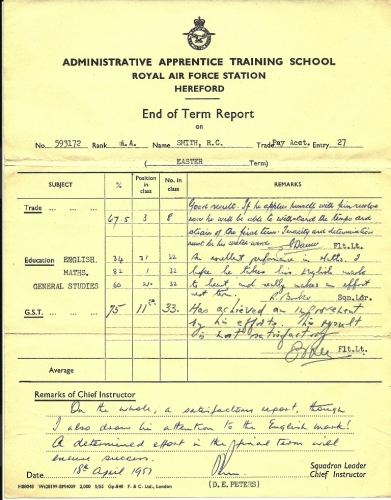 ADMINISTRATIVE APPRENTICE TRAINING SCHOOL
ROYAL AIR FORCE STATION
HEREFORD
End of Term Report
on
No. 593172 Rank A.A. Name SMITH, R.C. Trade Pay Acct. Entry 27
( EASTER Term)
SUBJECT % Position in class No. in class REMARKS
Trade ... ... ... 67.5 3 8
Good result. If he applies himself with firm resolve
now he will be able to withstand the tempo and
strain of the final term. Tenacity and determination
must be his watch-words. Flt.Lt.
Education ENGLISH. 34 31 32 An excellent performance in Maths. I
MATHS. 82 1 32 hope he takes his English mark
GENERAL STUDIES 60 32 to heart and really makes an effort
next term. Sqn.Ldr.
G.S.T. ... ... ... 75 11th 33. Has achieved an improvement
by his efforts. This result
is most satisfactory
Flt.Lt.
Average
Remarks of Chief Instructor
On the whole, a satisfactory report, though
I also draw his attention to the English mark!
A determined effort in the final term will
ensure success.
Date 18th April 1957 Squadron Leader
(D.E. PETERS) Chief Instructor
2,000 5/55 Gp.840 F. & C. Ltd., London